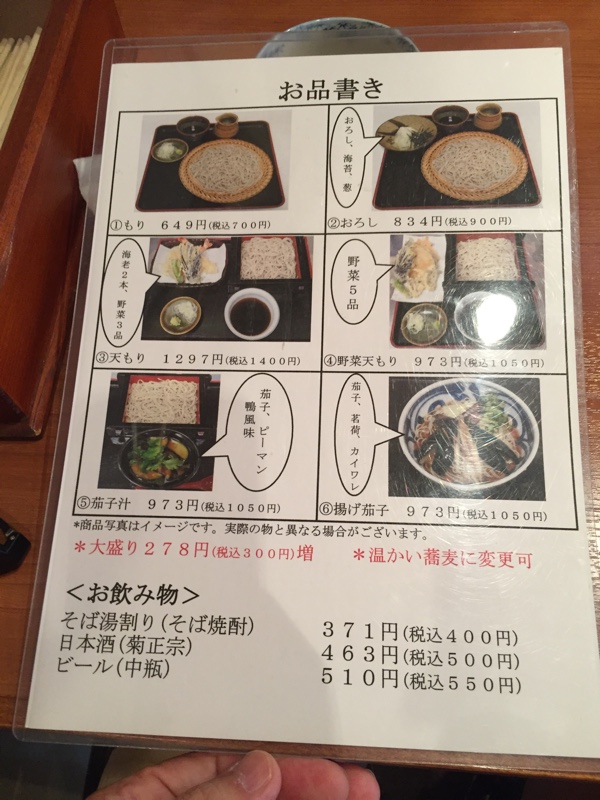 お品書き
おろし、海苔、葱
①もり　６４９円(税込７００円)
②おろし　８３４円(税込９００円)
海老２本、野菜３品
野菜５品
③天もり　１２９７円(税込１４００円)
④野菜天もり　９７３円(税込１０５０円)
茄子、ピーマン
鴨風味
茄子、茗荷、カイワレ
⑤茄子汁　９７３円(税込１０５０円)
⑥揚げ茄子　９７３円(税込１０５０円)
*商品写真はイメージです。実際の物と異なる場合がございます。
＊大盛り２７８円(税込３００円)増　＊温かい蕎麦に変更可
＜お飲み物＞
そば湯割り(そば焼酎)　３７１円(税込４００円)
日本酒(菊正宗)　４６３円(税込５００円)
ビール(中瓶)　５１０円(税込５５０円)